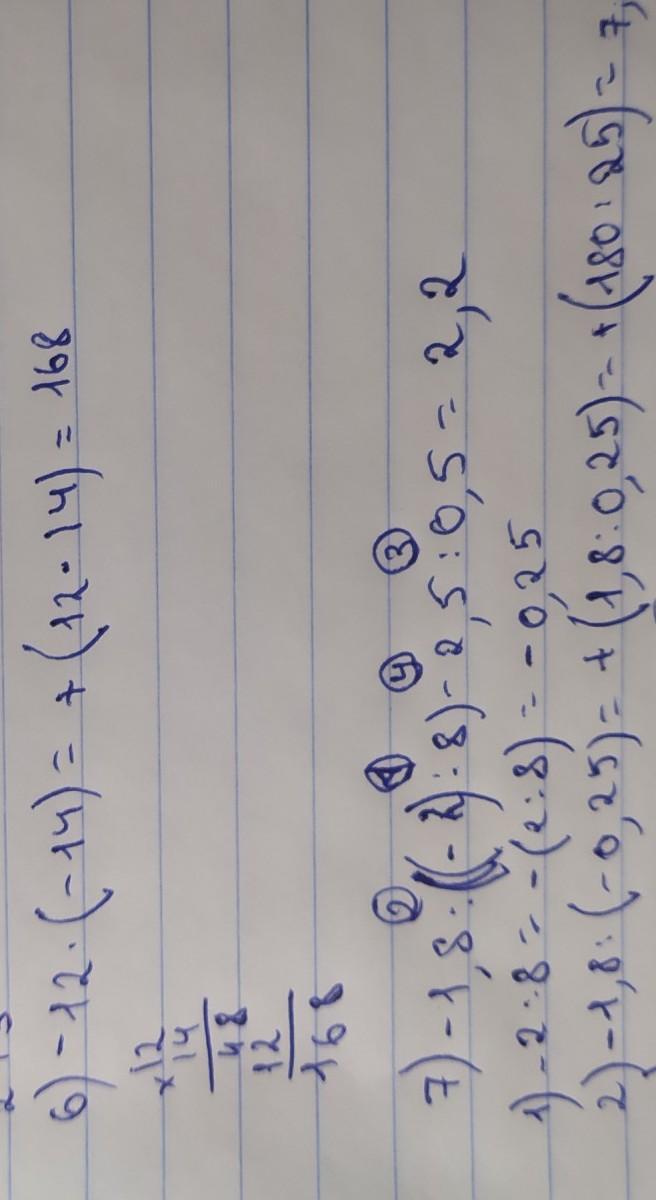 6) -12 · (-14) = + (12 · 14) = 168
× 12
14
48
12
168
② ① ④ ③
7) -1,8 : ((-2) : 8) - 2,5 : 0,5 = 2,2
1) -2 : 8 = - (2 : 8) = - 0,25
2) -1,8 : (-0,25) = + (1,8 : 0,25) = + (180 : 25) = 7,